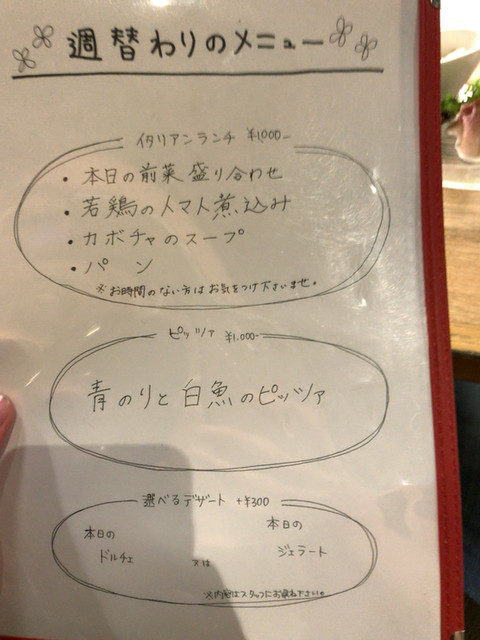 週替わりのメニュー
イタリアンランチ ¥1,000-
・本日の前菜盛り合わせ
・若鶏のトマト煮込み
・カボチャのスープ
・パン
※お時間のない方はお気をつけ下さいませ。
ピッツァ ¥1,000-
青のりと白魚のピッツァ
選べるデザート +¥300
本日の 本日の
ドルチェ 又は ジェラート
※内容はスタッフにお尋ね下さい。